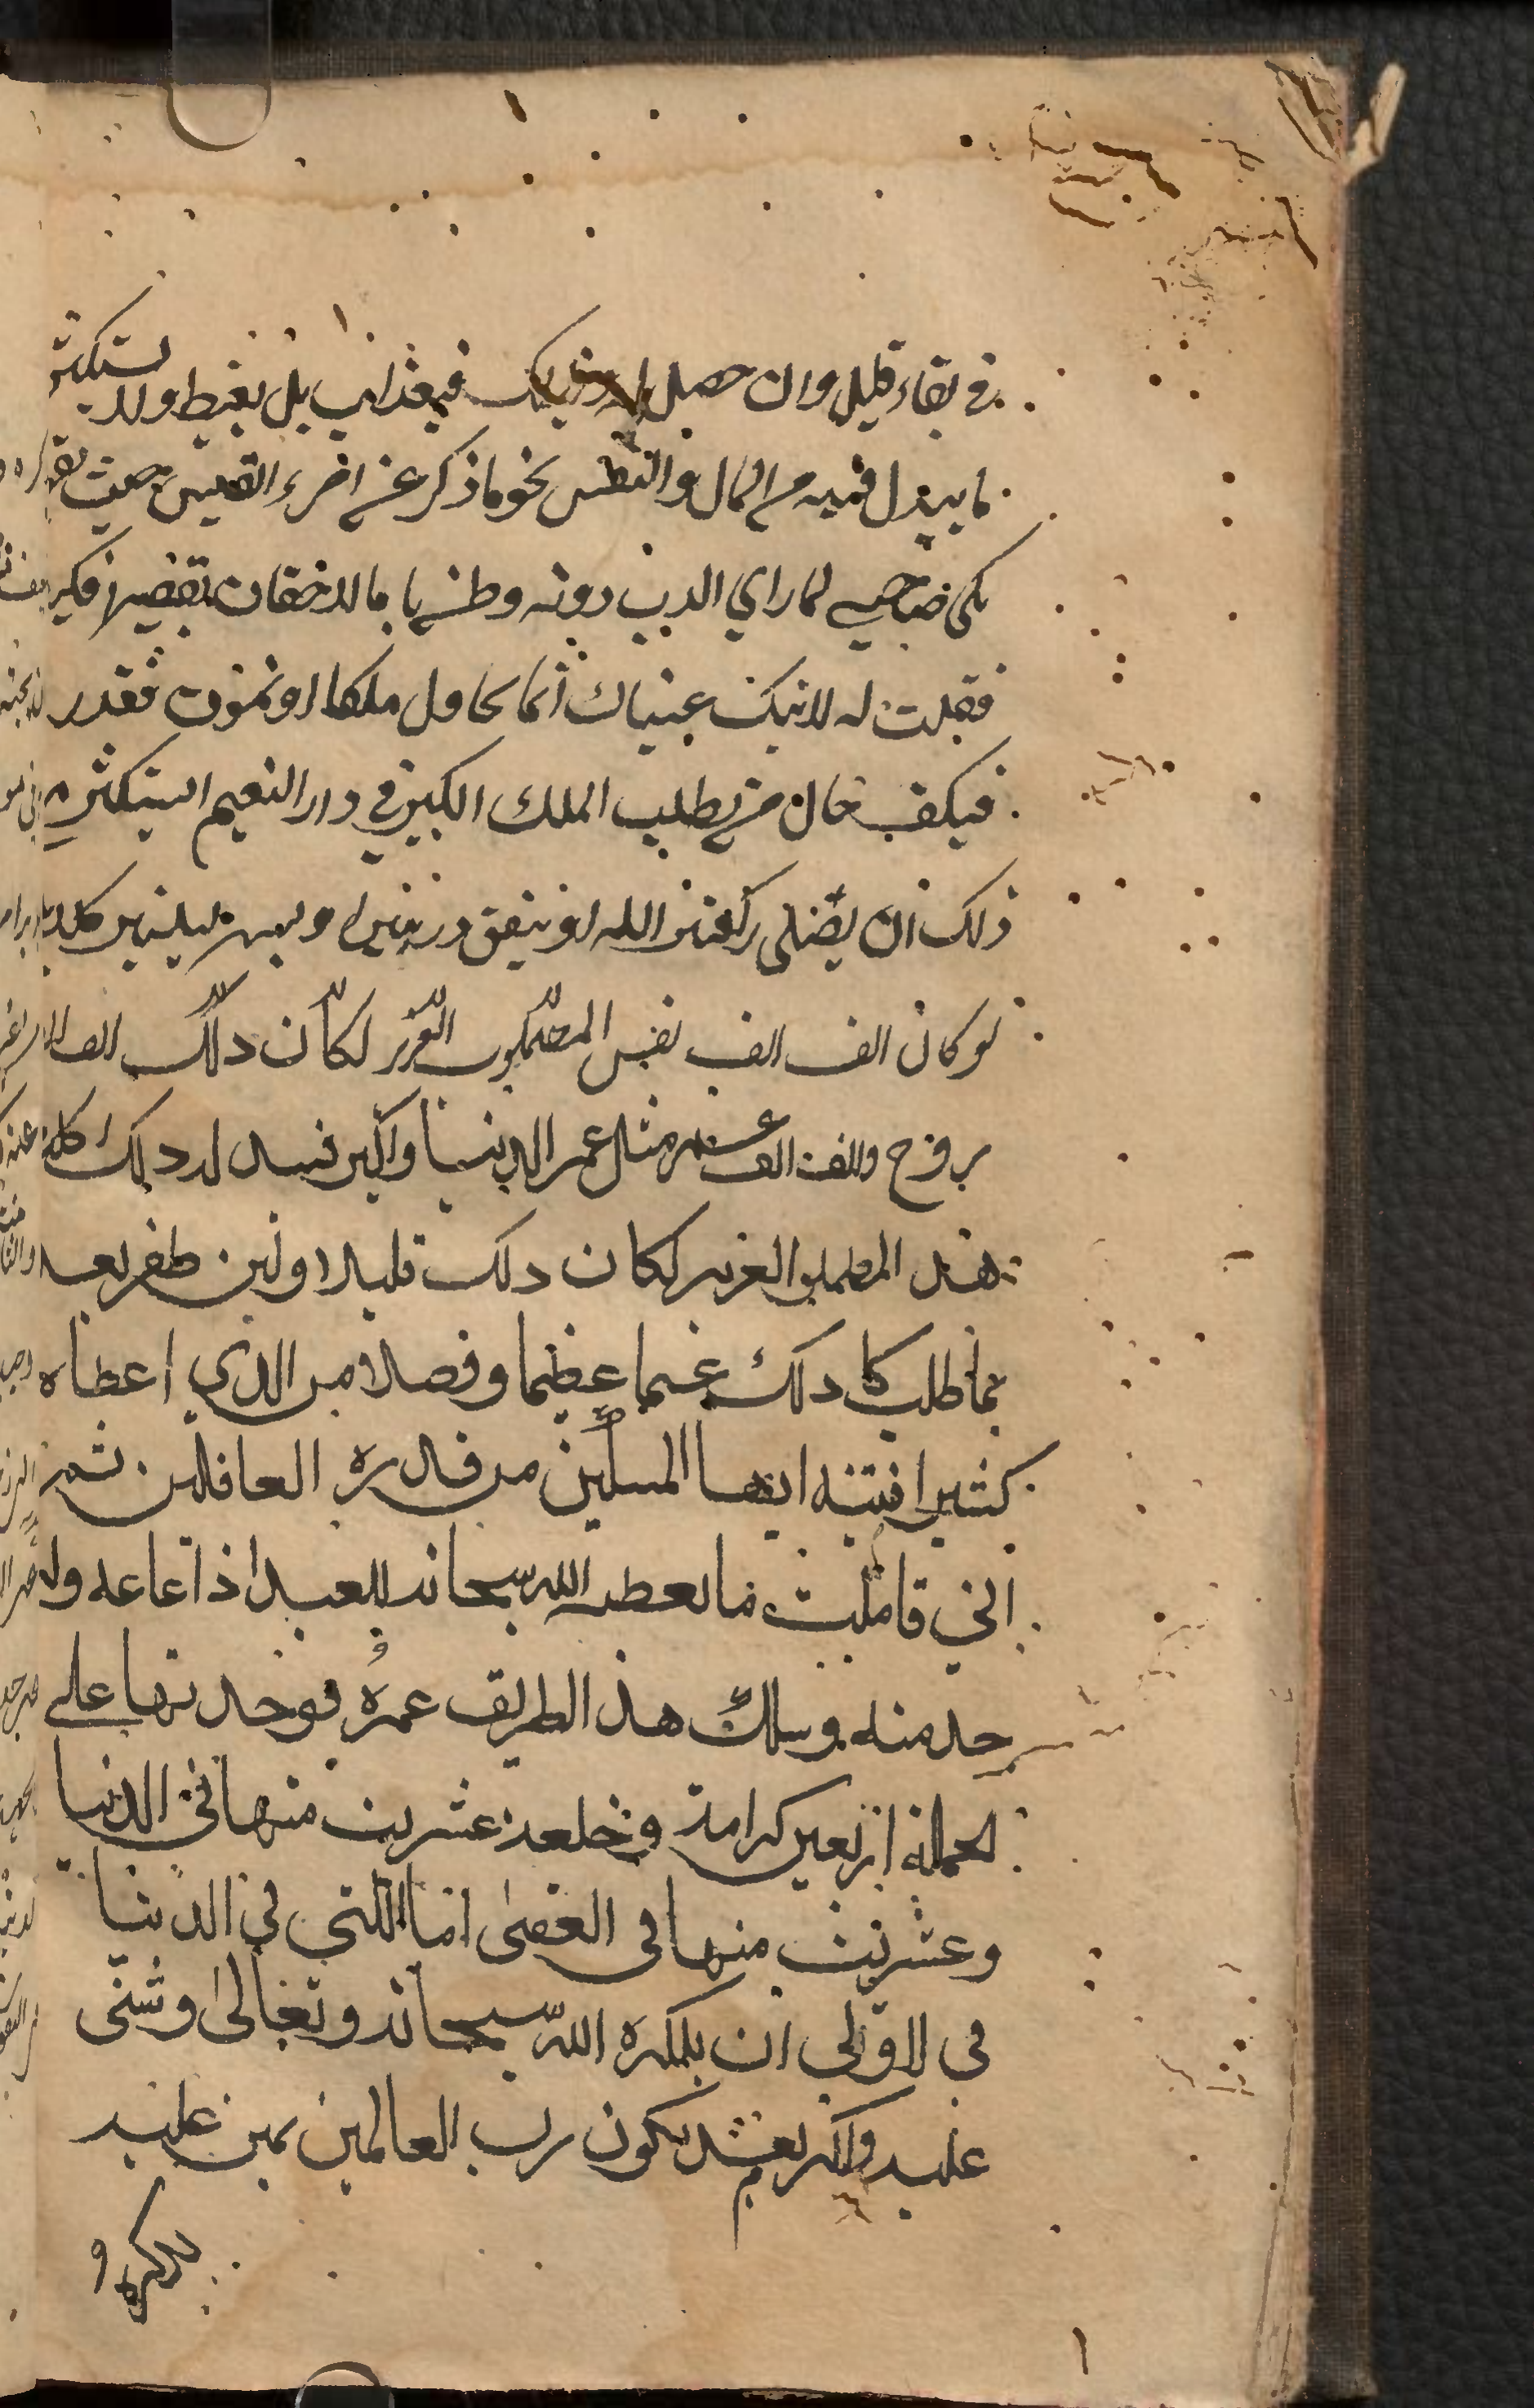 في بقاء قليل وان حصل له ذلك فيعذر بل يغبط ولا يستكثر
ما يبذل فيه من المال والنفس نحو ما ذكر عن امرء القيس حيث
بكى صاحبي لما راي الدرب دونه وظن بانا لاحقان بقيصرا
فقلت له لا تبك عيناك انما نحاول ملكا او نموت فنعذر
فكيف حال من يطلب الملك الكبير في دار النعيم ايستكثر مع
ذلك ان يصلى ركعتين لله او ينفق درهمين او يسهر ليلتين كلا بل
لو كان الف الف نفس المطلوب العزيز لكان ذلك الف الف
روح والف الف عمر مثل عمر الدنيا واكبر فبذل ذلك كله
هذا المطلوب العزيز لكان ذلك قليلا ولين ظفر بعد
بما طلب كا ذلك غنما عظيما وفضلا من الذي اعطاه
كثيرا فتنبه ايها المسكين من قدرة الغافلين ثم
اني تاملت ما يعطى الله سبحانه للعبد اذا اطاعه ول
خدمته وسلك هذ الطريق عمره فوجدتها على
الجملة اربعين كرامة وخلعة عشرين منها في الدنيا
وعشرين منها في العقبى اما اللتي في الدنيا
في الاولى ان يذكره الله سبحانه وتعالى وثنى
عليه واكرم بعبد يكون رب العالمين بمن عليه
بذكره و